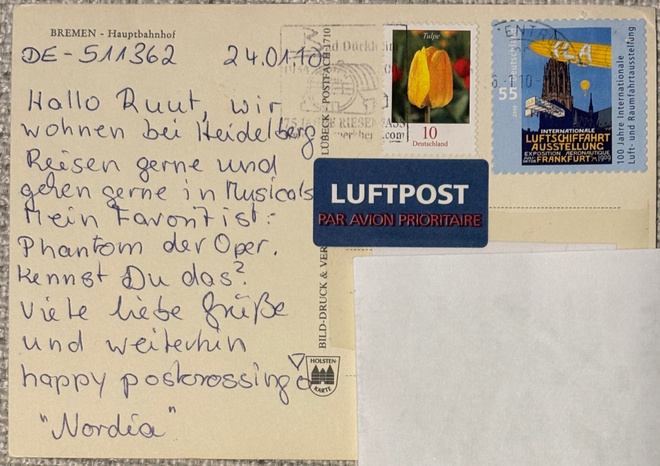 BREMEN - Hauptbahnhof
DE-511362 24.01.10
Hallo Ruut, wir
wohnen bei Heidelberg
Reisen gerne und
gehen gerne in Musicals
Mein Favorit ist:
Phantom der Oper.
Kennst Du das?
Viele liebe Grüße
und weiterhin
happy postcrossing
"Nordia"
LÜBECK · POSTFACH 1710
BILD-DRUCK & VER
HOLSTEN
KARTE
Tulpe
10
Deutschland
LUFTPOST
PAR AVION PRIORITAIRE
Deutschland
55
INTERNATIONALE
LUFTSCHIFFAHRT
AUSSTELLUNG
EXPOSITION AERONAUTIQUE
FRANKFURT 1909
100 Jahre Internationale
Luft- und Raumfahrtausstellung